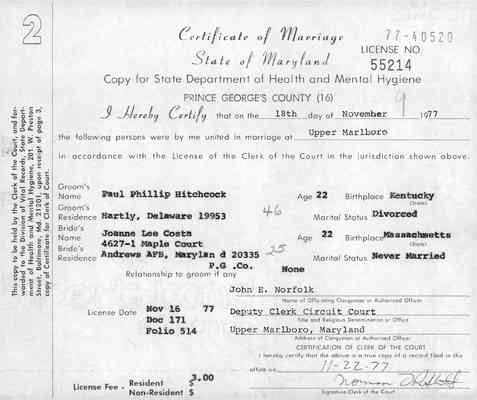 2
Certificate of Marriage
77-40520
State of Maryland
LICENSE NO.
55214
Copy for State Department of Health and Mental Hygiene
PRINCE GEORGE'S COUNTY (16)
9
I Hereby Certify that on the 18th day of November 1977
the following persons were by me united in marriage at Upper Marlboro
in accordance with the License of the Clerk of the Court in the jurisdiction shown above.
Groom's
Name Paul Phillip Hitchcock Age 22 Birthplace Kentucky
(State)
Groom's
Residence Hartly, Delaware 19953 46 Marital Status Divorced
Bride's
Name Joanne Lee Costa Age 22 Birthplace Massachusetts
(State)
4627-1 Maple Court
Bride's
Residence Andrews AFB, Marylan d 20335 25 Marital Status Never Married
P.G .Co.
Relationship to groom if any None
John E. Norfolk
Name of Officiating Clergyman or Authorized Officer
License Date Nov 16 77 Deputy Clerk Circuit Court
Doc 171 Title and Religious Denomination or Office
Folio 514 Upper Marlboro, Maryland
Address of Clergyman or Authorized Officer
CERTIFICATION OF CLERK OF THE COURT
I hereby certify that the above is a true copy of a record filed in the
office on 11-22-77
License Fee - Resident $3.00
Non-Resident $
Norman
Signature-Clerk of the Court
This copy to be held by the Clerk of the Court, and for-
warded to the Division of Vital Records, State Depart-
ment of Health and Mental Hygiene, 201 W. Preston
Street, Baltimore, Md. 21201, upon receipt of page 3,
copy of Certificate for Clerk of Court.